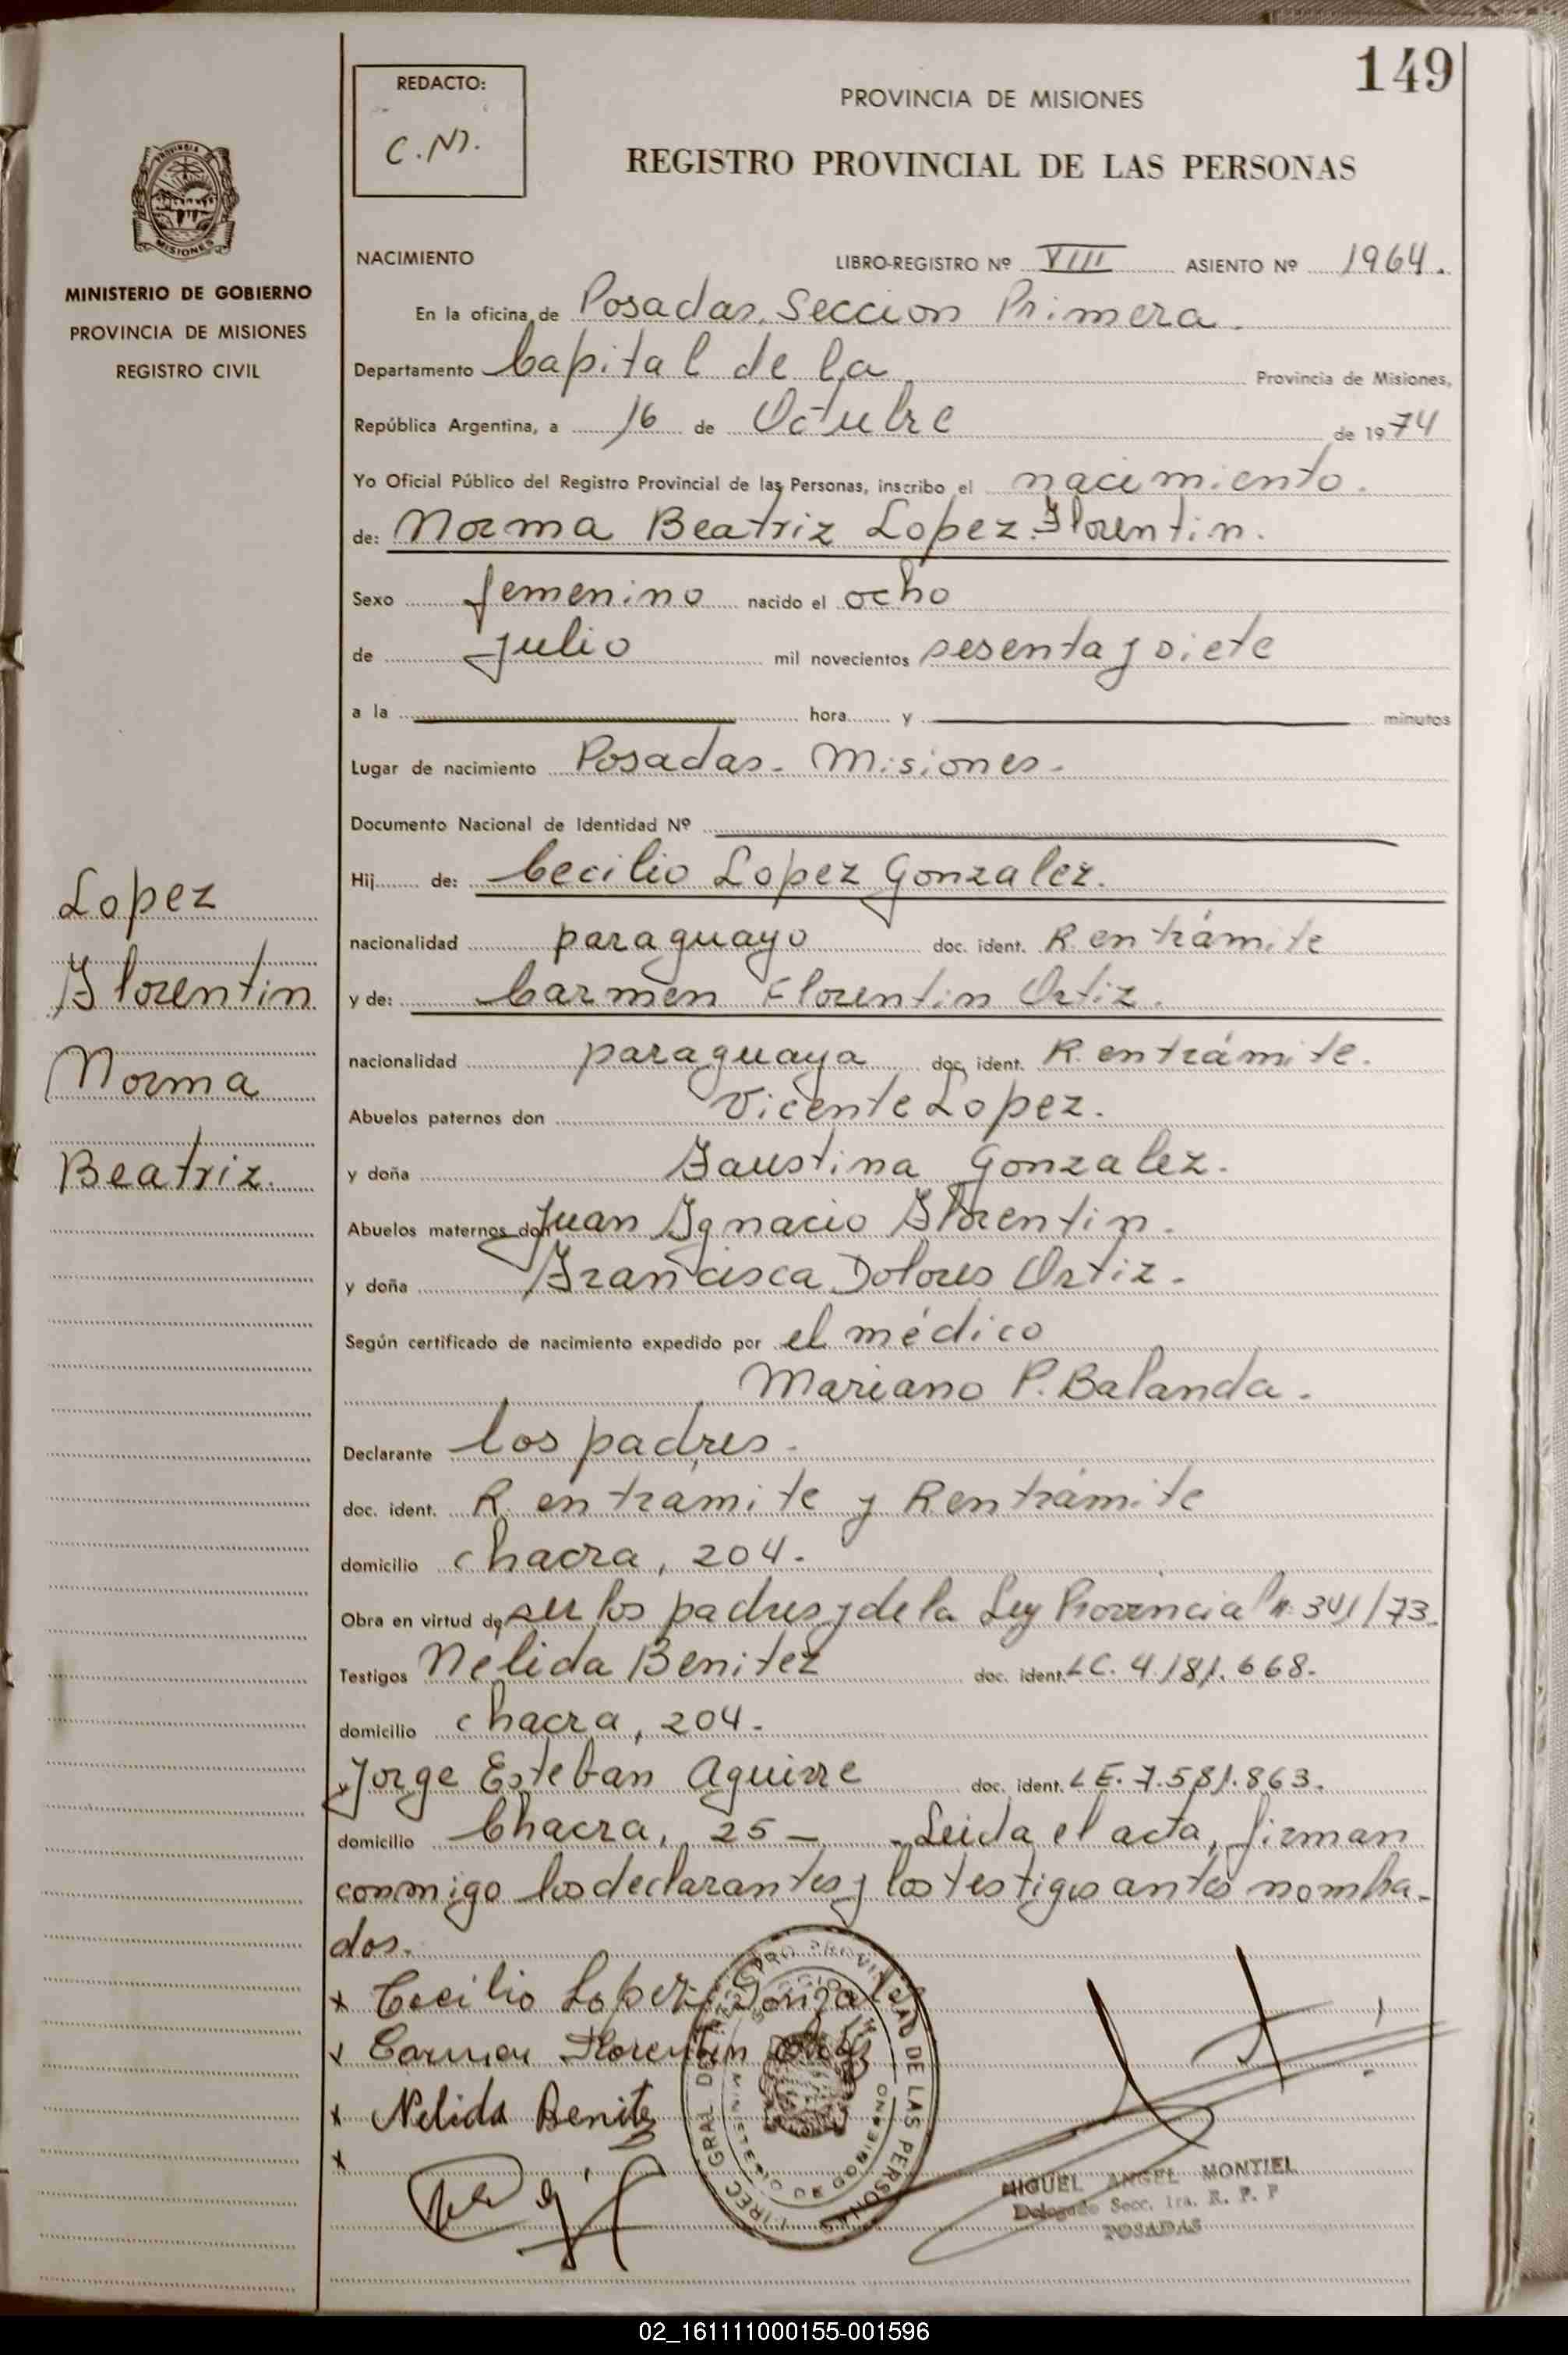 149
REDACTO:
C.M.
PROVINCIA DE MISIONES
REGISTRO PROVINCIAL DE LAS PERSONAS
PROVINCIA DE
MISIONES
MINISTERIO DE GOBIERNO
PROVINCIA DE MISIONES
REGISTRO CIVIL
NACIMIENTO LIBRO-REGISTRO Nº VIII ASIENTO Nº 1964.
En la oficina de Posadas. Seccion Primera.
Departamento Capital de la Provincia de Misiones,
República Argentina, a 16 de Octubre de 1974
Yo Oficial Público del Registro Provincial de las Personas, inscribo el nacimiento.
de: Norma Beatriz Lopez Florentin.
Sexo femenino nacido el ocho
de julio mil novecientos sesenta y siete
a la hora y minutos
Lugar de nacimiento Posadas - Misiones -
Documento Nacional de Identidad Nº
Hij de: Cecilio Lopez Gonzalez.
nacionalidad paraguayo doc. ident. R. en trámite
y de: Carmen Florentin Ortiz.
nacionalidad paraguaya doc. ident. R. en trámite.
Abuelos paternos don Vicente Lopez.
y doña Faustina Gonzalez.
Abuelos maternos don Juan Ignacio Florentin.
y doña Francisca Dolores Ortiz.
Según certificado de nacimiento expedido por el médico
Mariano P. Balanda.
Declarante los padres.
doc. ident. R. en tramite y R en trámite
domicilio chacra, 204.
Obra en virtud de ser los padres y de la Ley Provincial n: 341/73.
Testigos Nelida Benitez doc. ident. LC. 4.181.668.
domicilio chacra, 204.
Jorge Esteban Aguirre doc. ident. LE. 7.581.863.
domicilio Chacra, 25 - Leida el acta, firman
conmigo los declarantes y los testigos antes nombra-
dos.
Lopez
Florentin
Norma
Beatriz.
x Cecilio Lopez Gonzalez
x Carmen Florentin Ortiz
x Nelida Benitez
x
DIREC. GRAL. DEL REGISTRO PROVINCIAL DE LAS PERSONAS
MINISTERIO DE GOBIERNO
MIGUEL ANGEL MONTIEL
Delegado Secc. 1ra. R. P. P
POSADAS
02_161111000155-001596